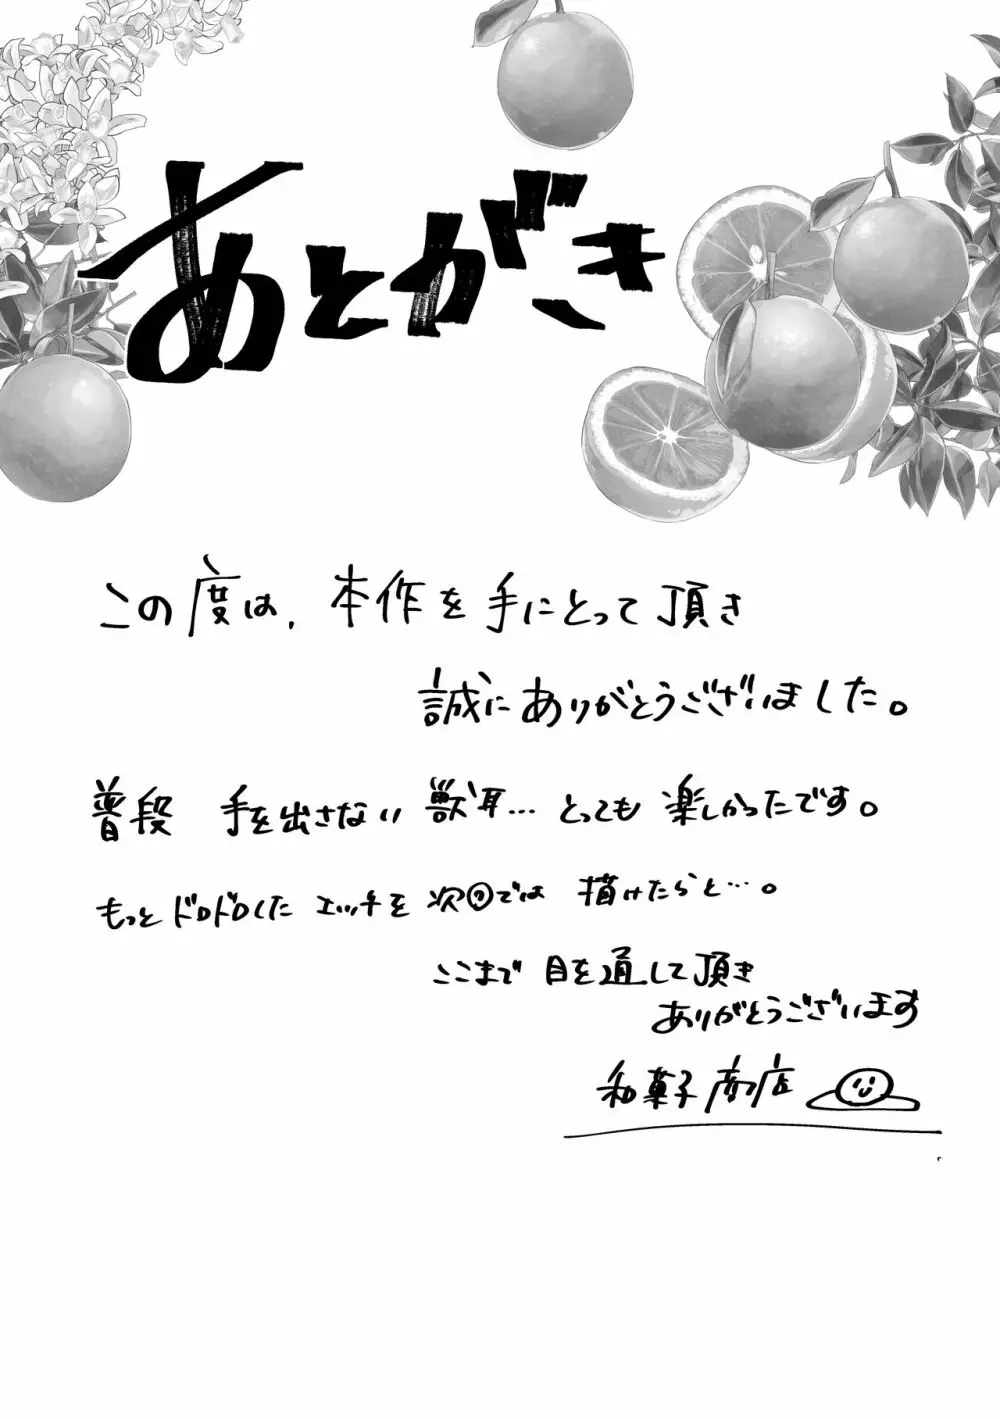 あとがき
この度は、本作を手にとって頂き
誠にありがとうございました。
普段 手を出さない獣耳…とっても楽しかったです。
もっとドロドロしたエッチを次回では描けたらと…。
ここまで目を通して頂き
ありがとうございます
和菓子商店